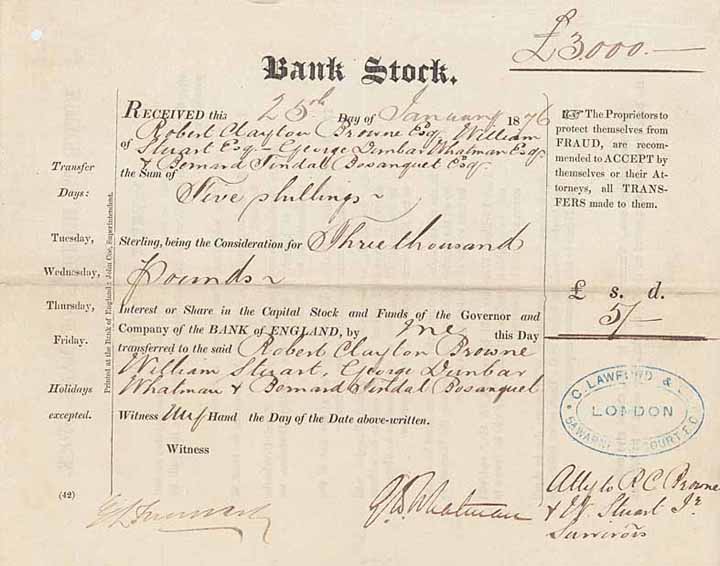 £3000.—
Bank Stock.
RECEIVED this 25th Day of January 1876
of Robert Clayton Browne Esq William
Stuart Esq – George Dunbar Whatman Esq
& Bernard Tindal Bosanquet Esq.
the Sum of
Five shillings
Sterling, being the Consideration for Three thousand
Pounds
Interest or Share in the Capital Stock and Funds of the Governor and
Company of the BANK of ENGLAND, by me this Day
transferred to the said Robert Clayton Browne
William Stuart, George Dunbar
Whatman & Bernard Tindal Bosanquet
Witness my Hand the Day of the Date above-written.
Witness
G D Whatman
Atty to R C Browne
& W. Stuart Jr
Survivors
Transfer
Days:
Tuesday,
Wednesday,
Thursday,
Friday.
Holidays
excepted.
(42)
Printed at the Bank of England: John Coe, Superintendent.
☞ The Proprietors to
protect themselves from
FRAUD, are recom-
mended to ACCEPT by
themselves or their At-
torneys, all TRANS-
FERS made to them.
£ s. d.
5/-
C. LAWFORD &
LONDON
COURT E.C.